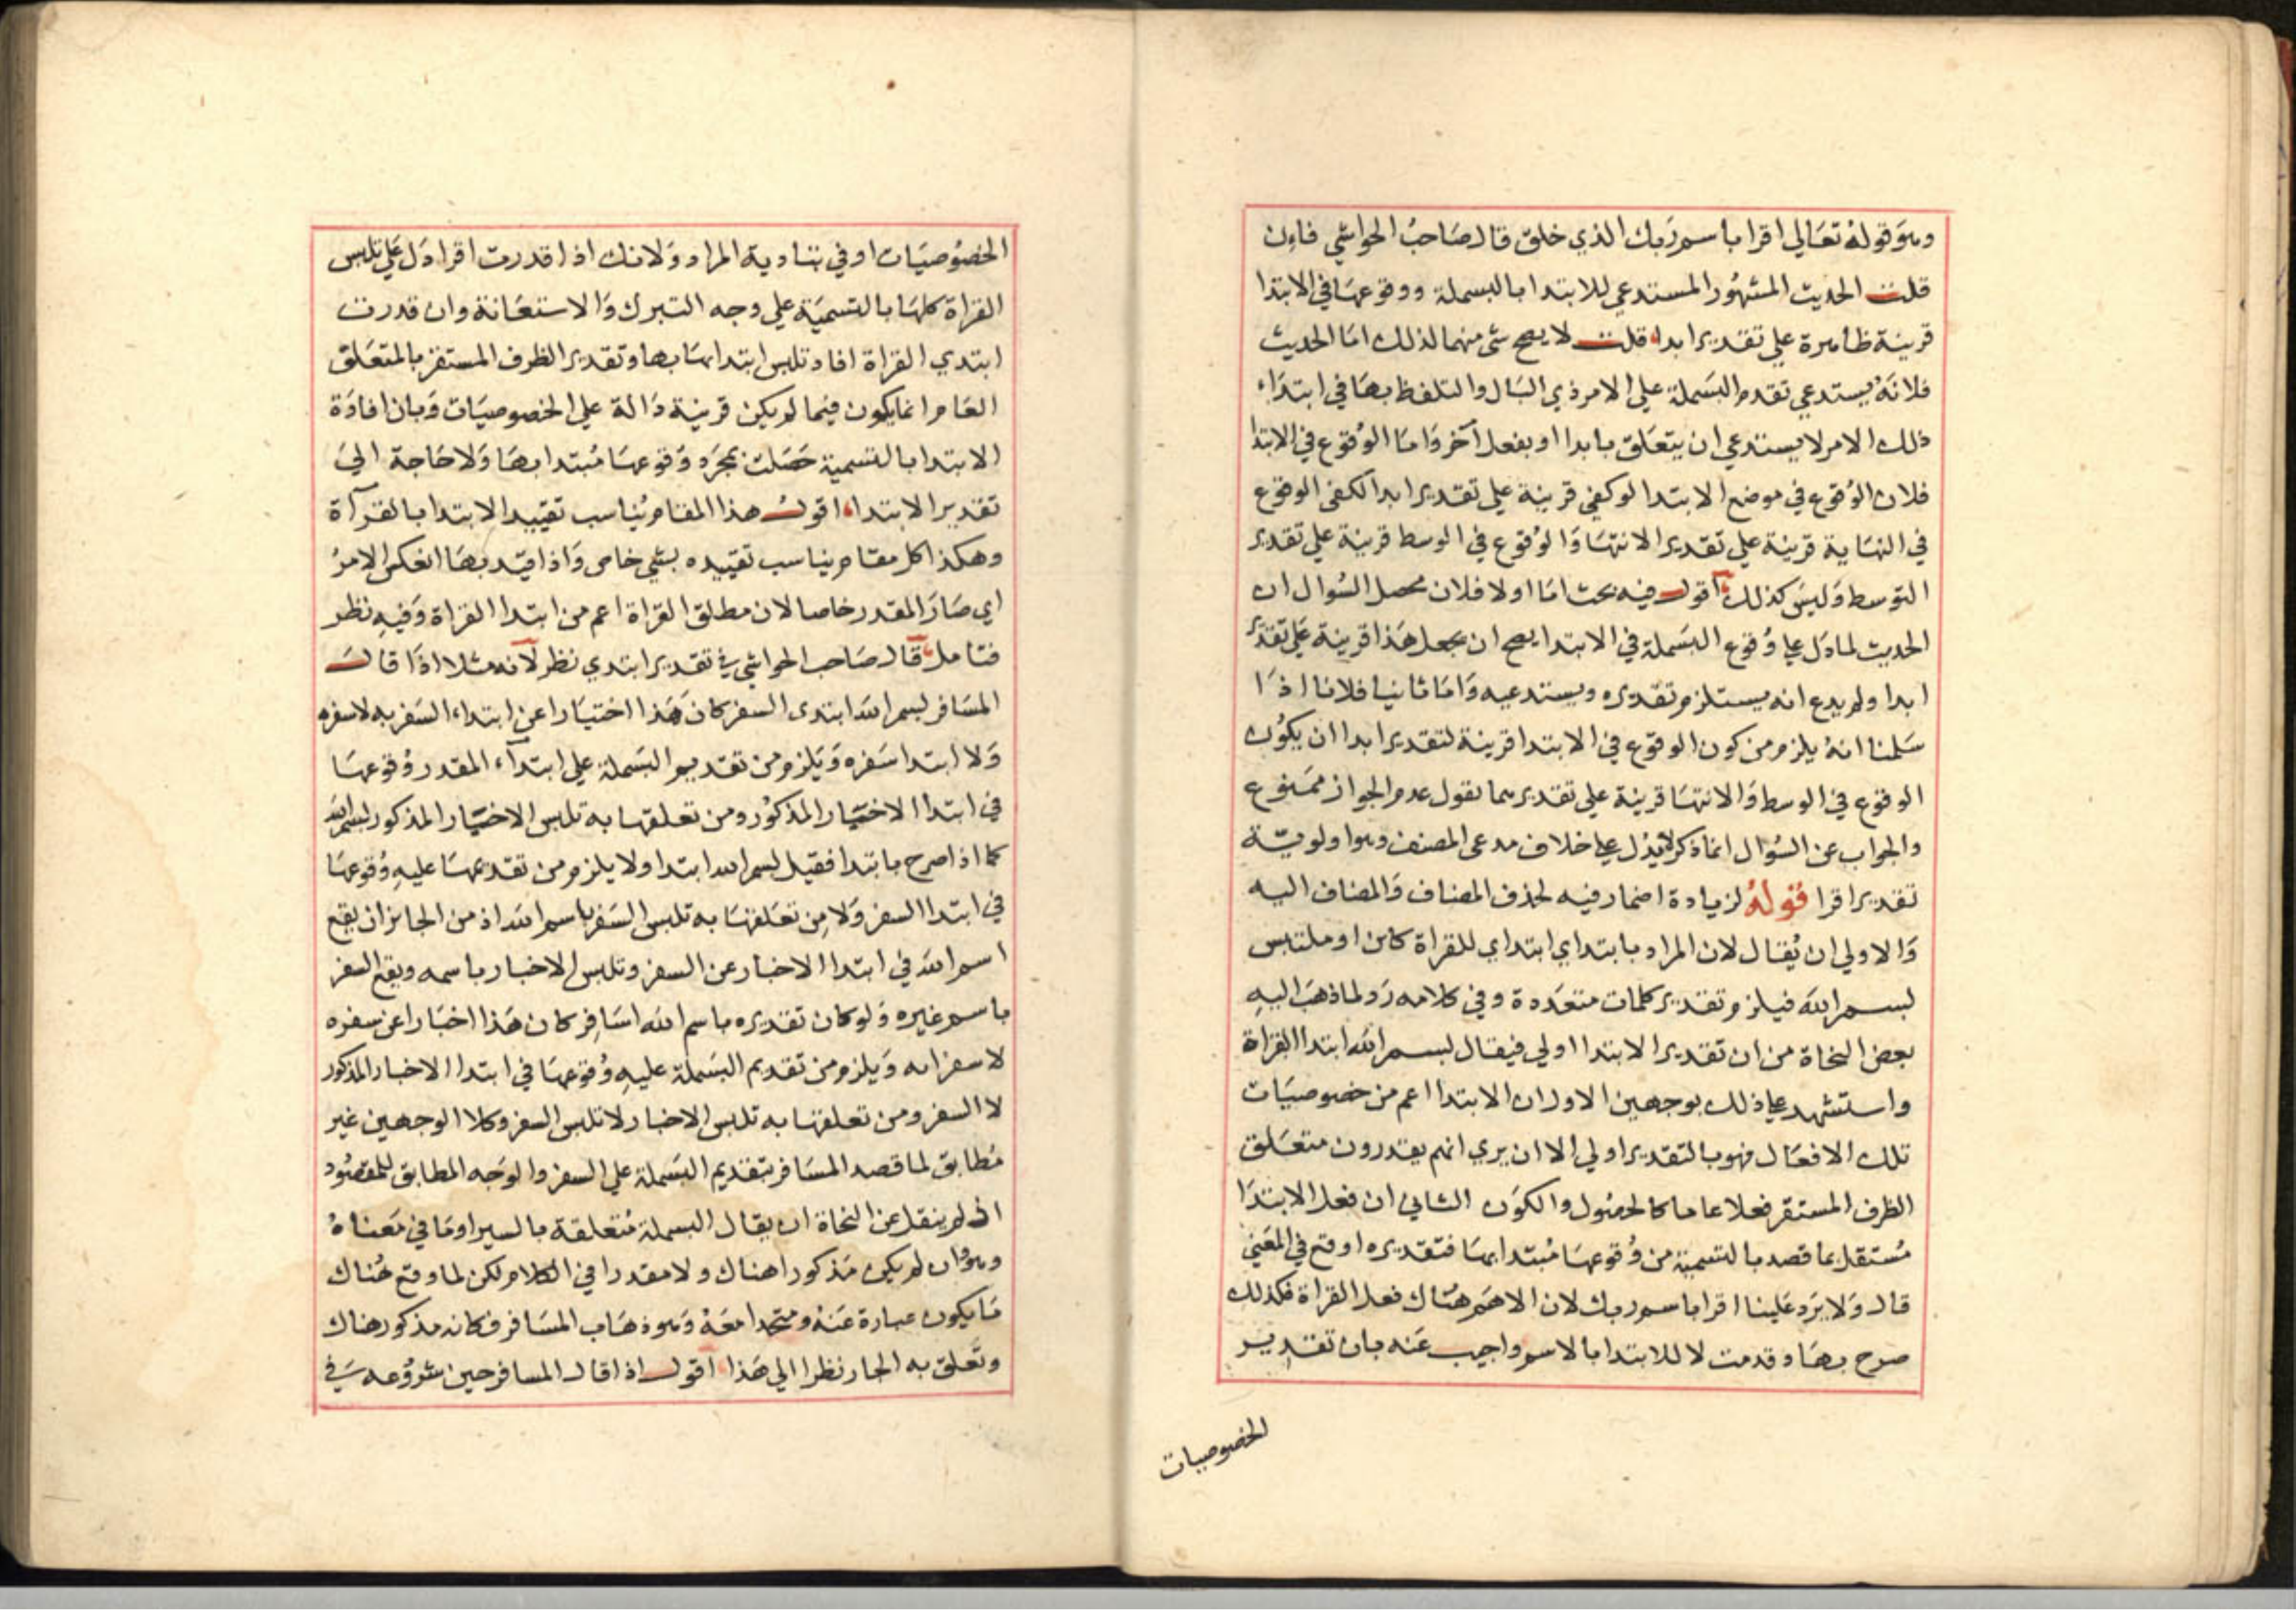 وهو قوله تعالي اقرا باسم ربك الذي خلق قال صاحب الحواشي فان
قلت الحديث المشهور المستدعي للابتدا بالبسملة ووقوعها في الابتدا
قرينة ظاهرة علي تقدير ابدا قلت لا يصح شئ منهما لذلك اما الحديث
فلانه يستدعي تقدم البسملة علي الامر ذي البال والتلفظ بها في ابتداء
ذلك الامر لا يستدعي ان يتعلق بابدا او بفعل آخر واما الوقوع في الابتدا
فلان الوقوع في موضع الابتدا لو كفي قرينة علي تقدير ابدا لكفي الوقوع
في النهاية قرينة علي تقدير الانتها والوقوع في الوسط قرينة علي تقدير
التوسط وليس كذلك اقول فيه بحث اما اولا فلان محصل السوال ان
الحديث لما دل علي وقوع البسملة في الابتدا يصح ان يجعل هذا قرينة علي تقدير
ابدا ولم يدع انه يستلزم تقديره ويستدعيه واما ثانيا فلانا اذا
سلمنا انه يلزم من كون الوقوع في الابتدا قرينة لتقدير ابدا ان يكون
الوقوع في الوسط والانتها قرينة علي تقديرهما نقول عدم الجواز ممنوع
والجواب عن السوال انما ذكر لا يدل علي خلاف مدعي المصنف وهو اولوية
تقدير اقرا قوله لزيادة اضمار فيه لحذف المضاف والمضاف اليه
والاولي ان يقال لان المراد بابتداي ابتداي للقراة كاىن او ملتبس
بسم الله فيلزم تقدير كلمات متعددة وفي كلامه رد لما ذهب اليه
بعض النحاة من ان تقدير الابتدا اولي فيقال بسم الله ابتدا القراة
واستشهد علي ذلك بوجهين الاول ان الابتدا اعم من خصوصيات
تلك الافعال فهو بالتقدير اولي الا ان يري انهم يقدرون متعلق
الظرف المستقر فعلا عاما كالحصول والكون الثاني ان فعل الابتدا
مستقل بما قصد بالتسمية من وقوعها مبتدا بها فتقديره اوقع في المعني
قال ولا يرد علينا اقرا باسم ربك لان الاهم هناك فعل القراة فكذلك
صرح بها وقدمت لا للابتدا بالاسم واجيب عنه بان تقدير
الخصوصيات
الخصوصيات اوفي بتادية المراد ولانك اذا قدرت اقرا دل علي تلبس
القراة كلها بالتسمية علي وجه التبرك والاستعانة وان قدرت
ابتدي القراة افاد تلبس ابتدائها بها وتقدير الظرف المستقر بالمتعلق
العام انما يكون فيما لم يكن قرينة دالة علي الخصوصيات وبان افادة
الابتدا بالتسمية حصلت بمجرد وقوعها مبتدا بها ولا حاجة الي
تقدير الابتدا اقول هذا المقام يناسب تقييد الابتدا بالقرآة
وهكذا كل مقام يناسب تقييده بشي خاص واذا قيد بها انعكس الامر
اي صار المقدر خاصا لان مطلق القراة اعم من ابتدا القراة وفيه نظر
فتامل قال صاحب الحواشي في تقدير ابتدي نظر لانه مثلا اذا قال
المسافر بسم الله ابتدي السفر كان هذا اختيارا عن ابتداء السفر به لا سفره
ولا ابتدا سفره ويلزم من تقديم البسملة علي ابتدآء المقدر وقوعها
في ابتدا الاختيار المذكور ومن تعلقها به تلبس الاختيار المذكور بسم الله
كما اذا صرح بابتدا فقيل بسم الله ابتدا ولا يلزم من تقديمها عليه وقوعها
في ابتدا السفر ولا من تعلقها به تلبس السفر باسم الله اذ من الجايز ان يقع
اسم الله في ابتدا الاخبار عن السفر وتلبس الاخبار باسمه ويقع السفر
باسم غيره ولو كان تقديره باسم الله اسافر كان هذا اخبارا عن سفره
لا سفرا به ويلزم من تقديم البسملة عليه وقوعها في ابتدا الاخبار المذكور
لا السفر ومن تعلقها به تلبس الاخبار لا تلبس السفر وكلا الوجهين غير
مطابق لما قصد المسافر بتقديم البسملة علي السفر والوجه المطابق للمقصود
ان لم ينقل عن النحاة ان يقال البسملة متعلقة بالسير او ما في معناه
وهو ان لم يكن مذكورا هناك ولا مقدرا في الكلام لكن لما وقع هناك
ما يكون عبارة عنه ومتحدا معه وهو ذهاب المسافر فكانه مذكور هناك
وتعلق به الجار نظرا الي هذا اقول اذا قال المسافر حين شروعه في